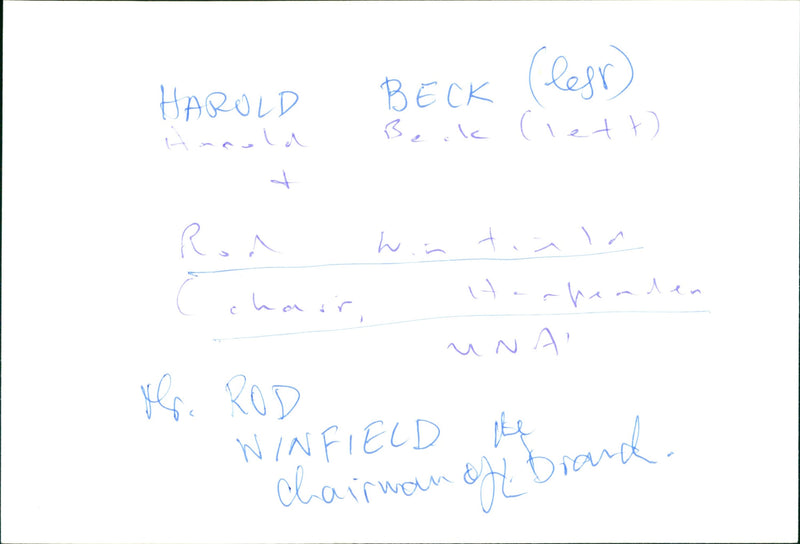 HAROLD BECK (left)
Harold Beck (left)
+
Rod Winfield
(chair, Harpenden
UNA)
Mr. ROD
WINFIELD the
chairman of Branch.